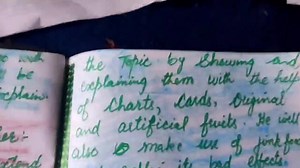 e with
be
explain
the Topic by Showing and
explaining them with the help
of Charts, Cards, Original
and artificial fruits. He will
also make use of junk foo
its bad effects